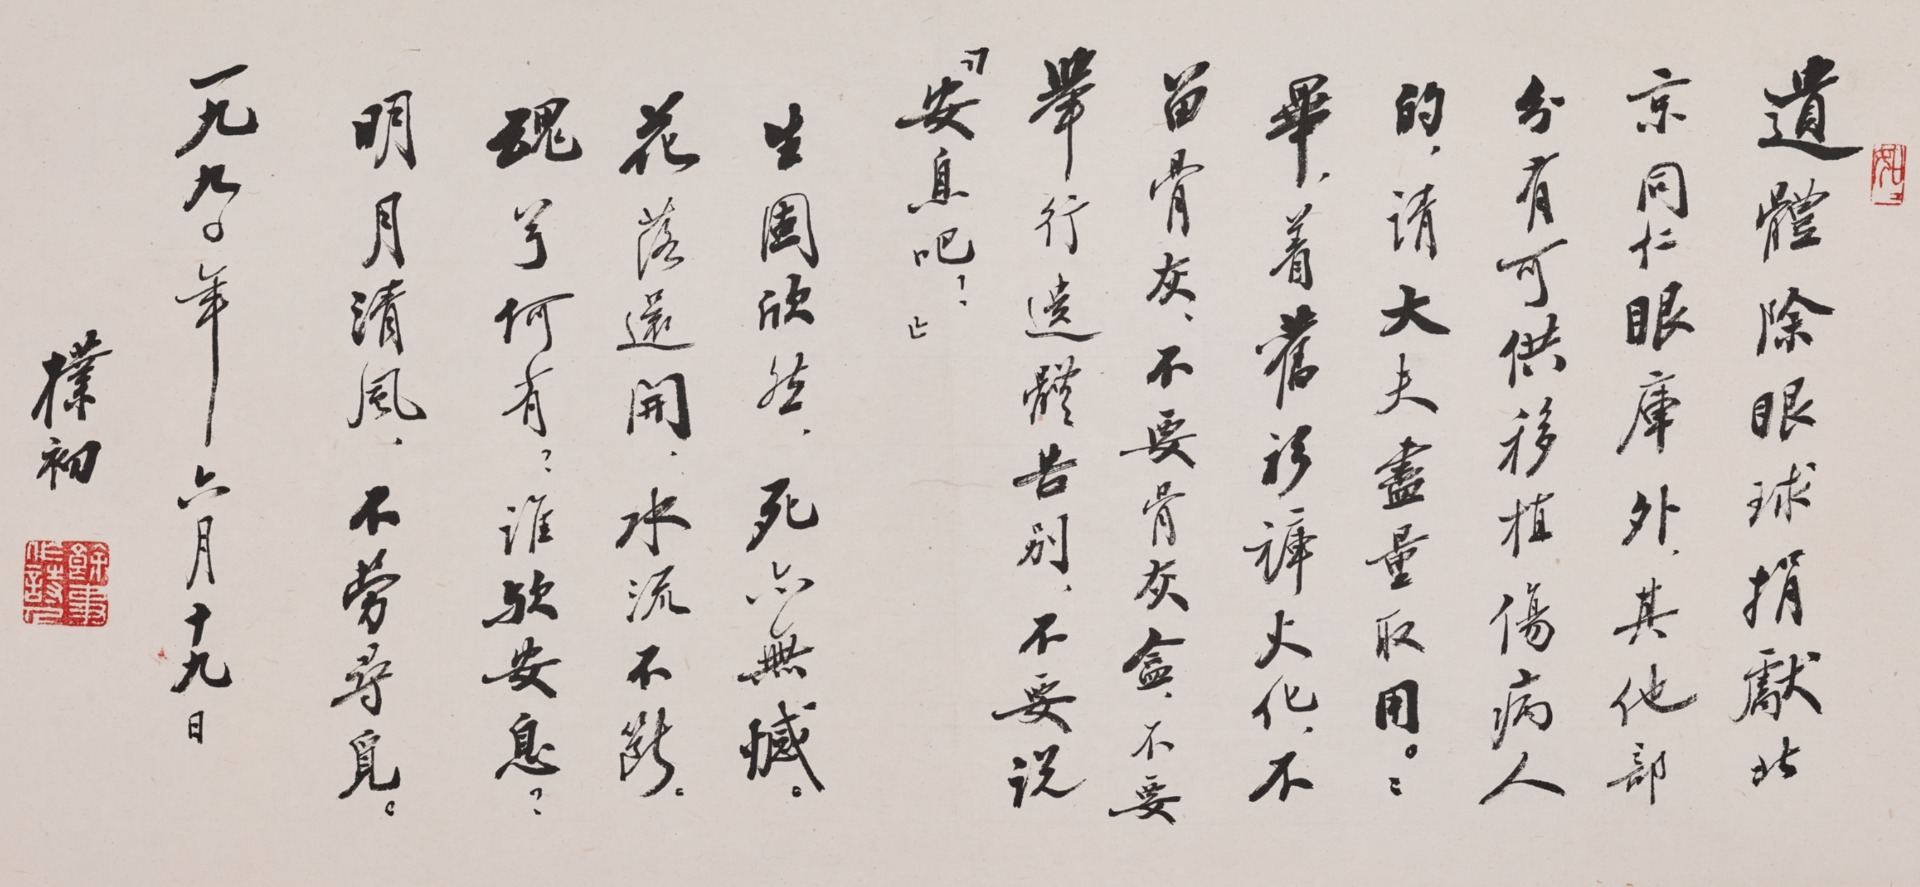 遺體除眼球捐獻北
京同仁眼庫外，其他部
分有可供移植傷病人
的，請大夫盡量取用。〻
畢，着舊衫褲火化，不
留骨灰，不要骨灰盒，不要
舉行遺體告別，不要説
「安息吧！」
生固欣然，死亦無憾。
花落還開，水流不斷。
魂兮何有？誰歟安息？
明月清風，不勞尋覓。
一九九〇年六月十九日
樸初